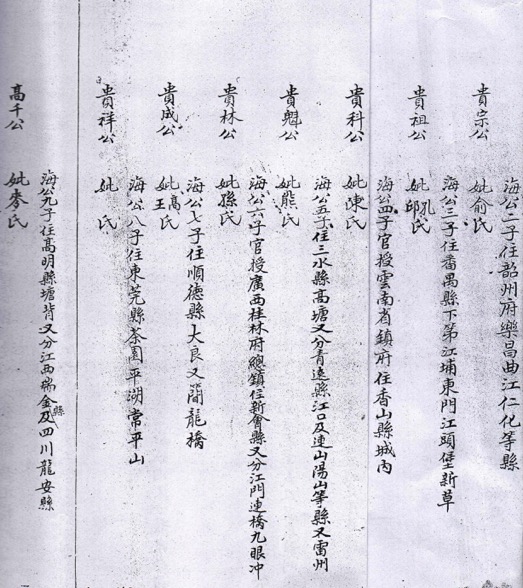 貴宗公
海公二子住韶州府樂昌曲江仁化等縣
妣俞氏
貴祖公
海公三子住番禺縣下第江埔東門江頭堡新草
妣孔邱氏
貴科公
海公四子官授雲南省鎮府住香山縣城內
妣陳氏
貴魁公
海公五子住三水縣高塘又分青遠縣江口及連山陽山等縣又雷州
妣熊氏
貴林公
海公六子官授廣西桂林府總鎮住新會縣又分江門連橋九眼冲
妣孫氏
貴成公
海公七子住順德縣大良又簡龍橋
妣高王氏
貴祥公
海公八子住東莞縣茶園平湖常平山
妣 氏
高千公
海公九子住高明縣塘背又分江西瑞金縣及四川龍安縣
妣麥氏